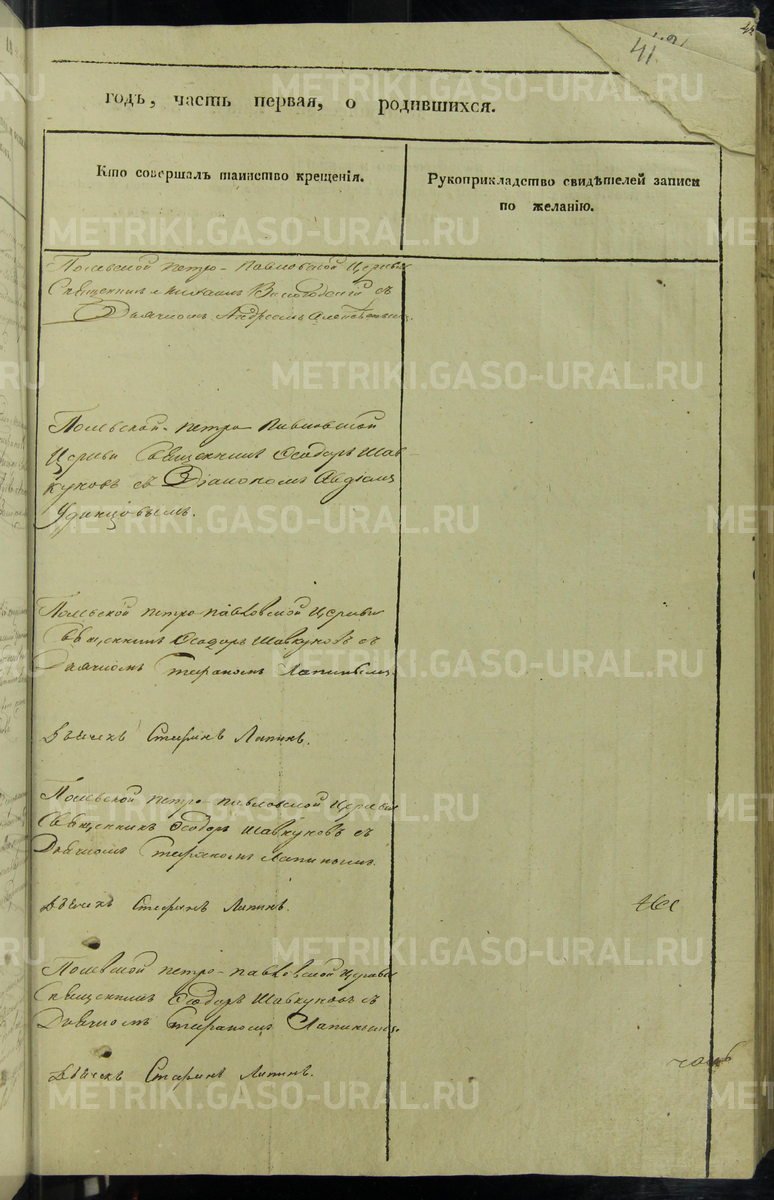 41
годъ, часть первая, о родившихся.
Кто совершалъ таинство крещенія.
Рукоприкладство свидѣтелей записи
по желанію.
Полевской Петро-Павловской Церкви
Священникъ Михаилъ Вологодскій съ
Дьячкомъ Андреемъ
Полевской Петро Павловской
Церкви Священникъ Ѳеодоръ Шав-
куновъ съ Діакономъ Авдіемъ
Удинцовымъ.
Полевской Петро-Павловской Церкви
Священникъ Ѳеодоръ Шавкуновъ съ
Дьячкомъ Стефаномъ Лапинымъ
Дьячекъ Стефанъ Лапинъ.
Полевской Петро-Павловской Церкви
Священникъ Ѳеодоръ Шавкуновъ съ
Дьячкомъ Стефаномъ Лапинымъ.
Дьячекъ Стефанъ Лапинъ.
Полевской Петро-Павловской Церкви
Священникъ Ѳеодоръ Шавкуновъ съ
Дьячкомъ Стефаномъ Лапинымъ.
Дьячекъ Стефанъ Лапинъ.
METRIKI.GASO-URAL.RU